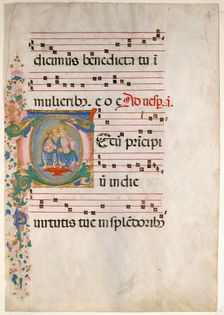 dicimus benedicta tu i
mulieribꝫ. e o e Ad uesp̄. ā.
Tecū pricipi
ū in die
uirtutis tue in splēdoribꝫ